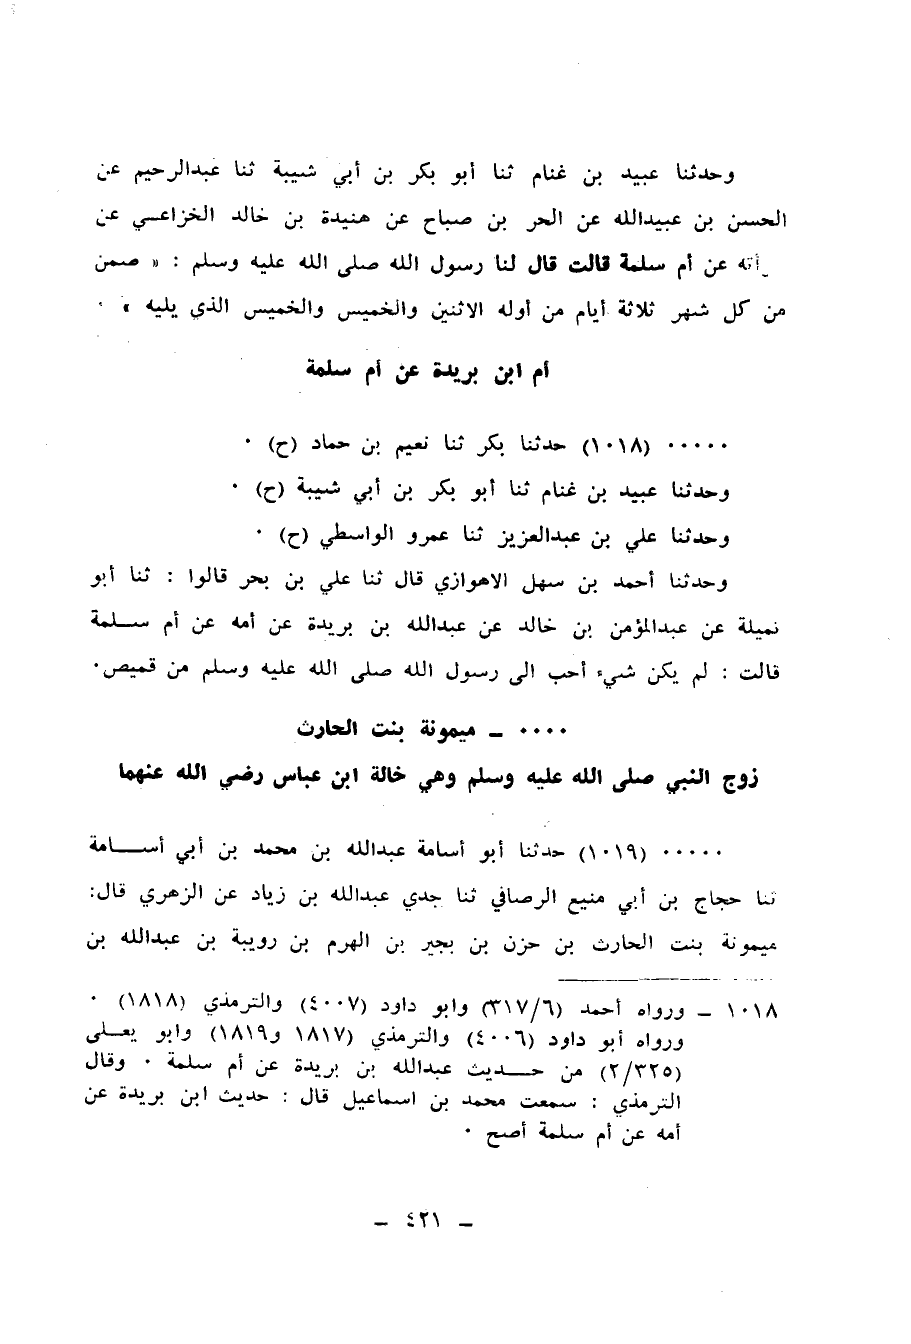 وحدثنا عبيد بن غنام ثنا أبو بكر بن أبي شيبة ثنا عبدالرحيم عن
الحسن بن عبيدالله عن الحر بن صباح عن هنيدة بن خالد الخزاعي عن
عن أم سلمة قالت قال لنا رسول الله صلى الله عليه وسلم : « صمن
من كل شهر ثلاثة أيام من أوله الاثنين والخميس والخميس الذي يليه » ٠
أم ابن بريدة عن أم سلمة
٠٠٠٠٠ (١٠١٨) حدثنا بكر ثنا نعيم بن حماد (ح) ٠
وحدثنا عبيد بن غنام ثنا أبو بكر بن أبي شيبة (ح) ٠
وحدثنا علي بن عبدالعزيز ثنا عمرو الواسطي (ح) ٠
وحدثنا أحمد بن سهل الاهوازي قال ثنا علي بن بحر قالوا : ثنا أبو
نميلة عن عبدالمؤمن بن خالد عن عبدالله بن بريدة عن أمه عن أم سلمة
قالت : لم يكن شيء أحب الى رسول الله صلى الله عليه وسلم من قميص٠
٠٠٠٠ ــ ميمونة بنت الحارث
زوج النبي صلى الله عليه وسلم وهي خالة ابن عباس رضي الله عنهما
٠٠٠٠٠ (١٠١٩) حدثنا أبو أسامة عبدالله بن محمد بن أبي أسامة
ثنا حجاج بن أبي منيع الرصافي ثنا جدي عبدالله بن زياد عن الزهري قال:
ميمونة بنت الحارث بن حزن بن بجير بن الهرم بن رويبة بن عبدالله بن
١٠١٨ ــ ورواه أحمد (٣١٧/٦) وابو داود (٤٠٠٧) والترمذي (١٨١٨) ٠
ورواه أبو داود (٤٠٠٦) والترمذي (١٨١٧ و١٨١٩) وابو يعلى
(٢/٣٢٥) من حديث عبدالله بن بريدة عن أم سلمة ٠ وقال
الترمذي : سمعت محمد بن اسماعيل قال : حديث ابن بريدة عن
أمه عن أم سلمة أصح ٠
ــ ٤٢١ ــ